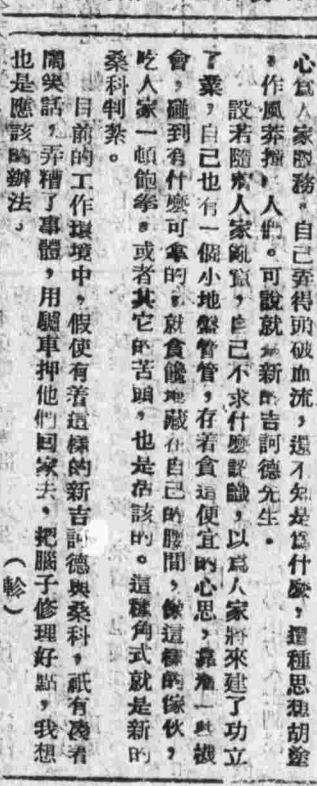 心爲人家服務。自己弄得頭破血流，還不知是爲什麽，這種思想胡塗
，作風莽撞，人們。可說就是新的吉訶德先生。
設若隨着人家亂竄，自己不求什麽認識，以爲人家將來建了功立
了業，自己也有一個小地盤管管，存着貪這便宜的心思，靠着一點機
會，碰到有什麽可拿的，就貪饞地藏在自己的腰間，像這樣的傢伙，
吃人家一頓飽拳。或者其它的苦頭，也是活該的。這種角式就是新的
桑科判紮。
目前的工作環境中，假使有着這樣的新吉訶德與桑科，祇有湊着
鬧笑話，弄糟了事體，用驢車押他們回家去，把腦子修理好點，我想
也是應該的辦法。
（軫）